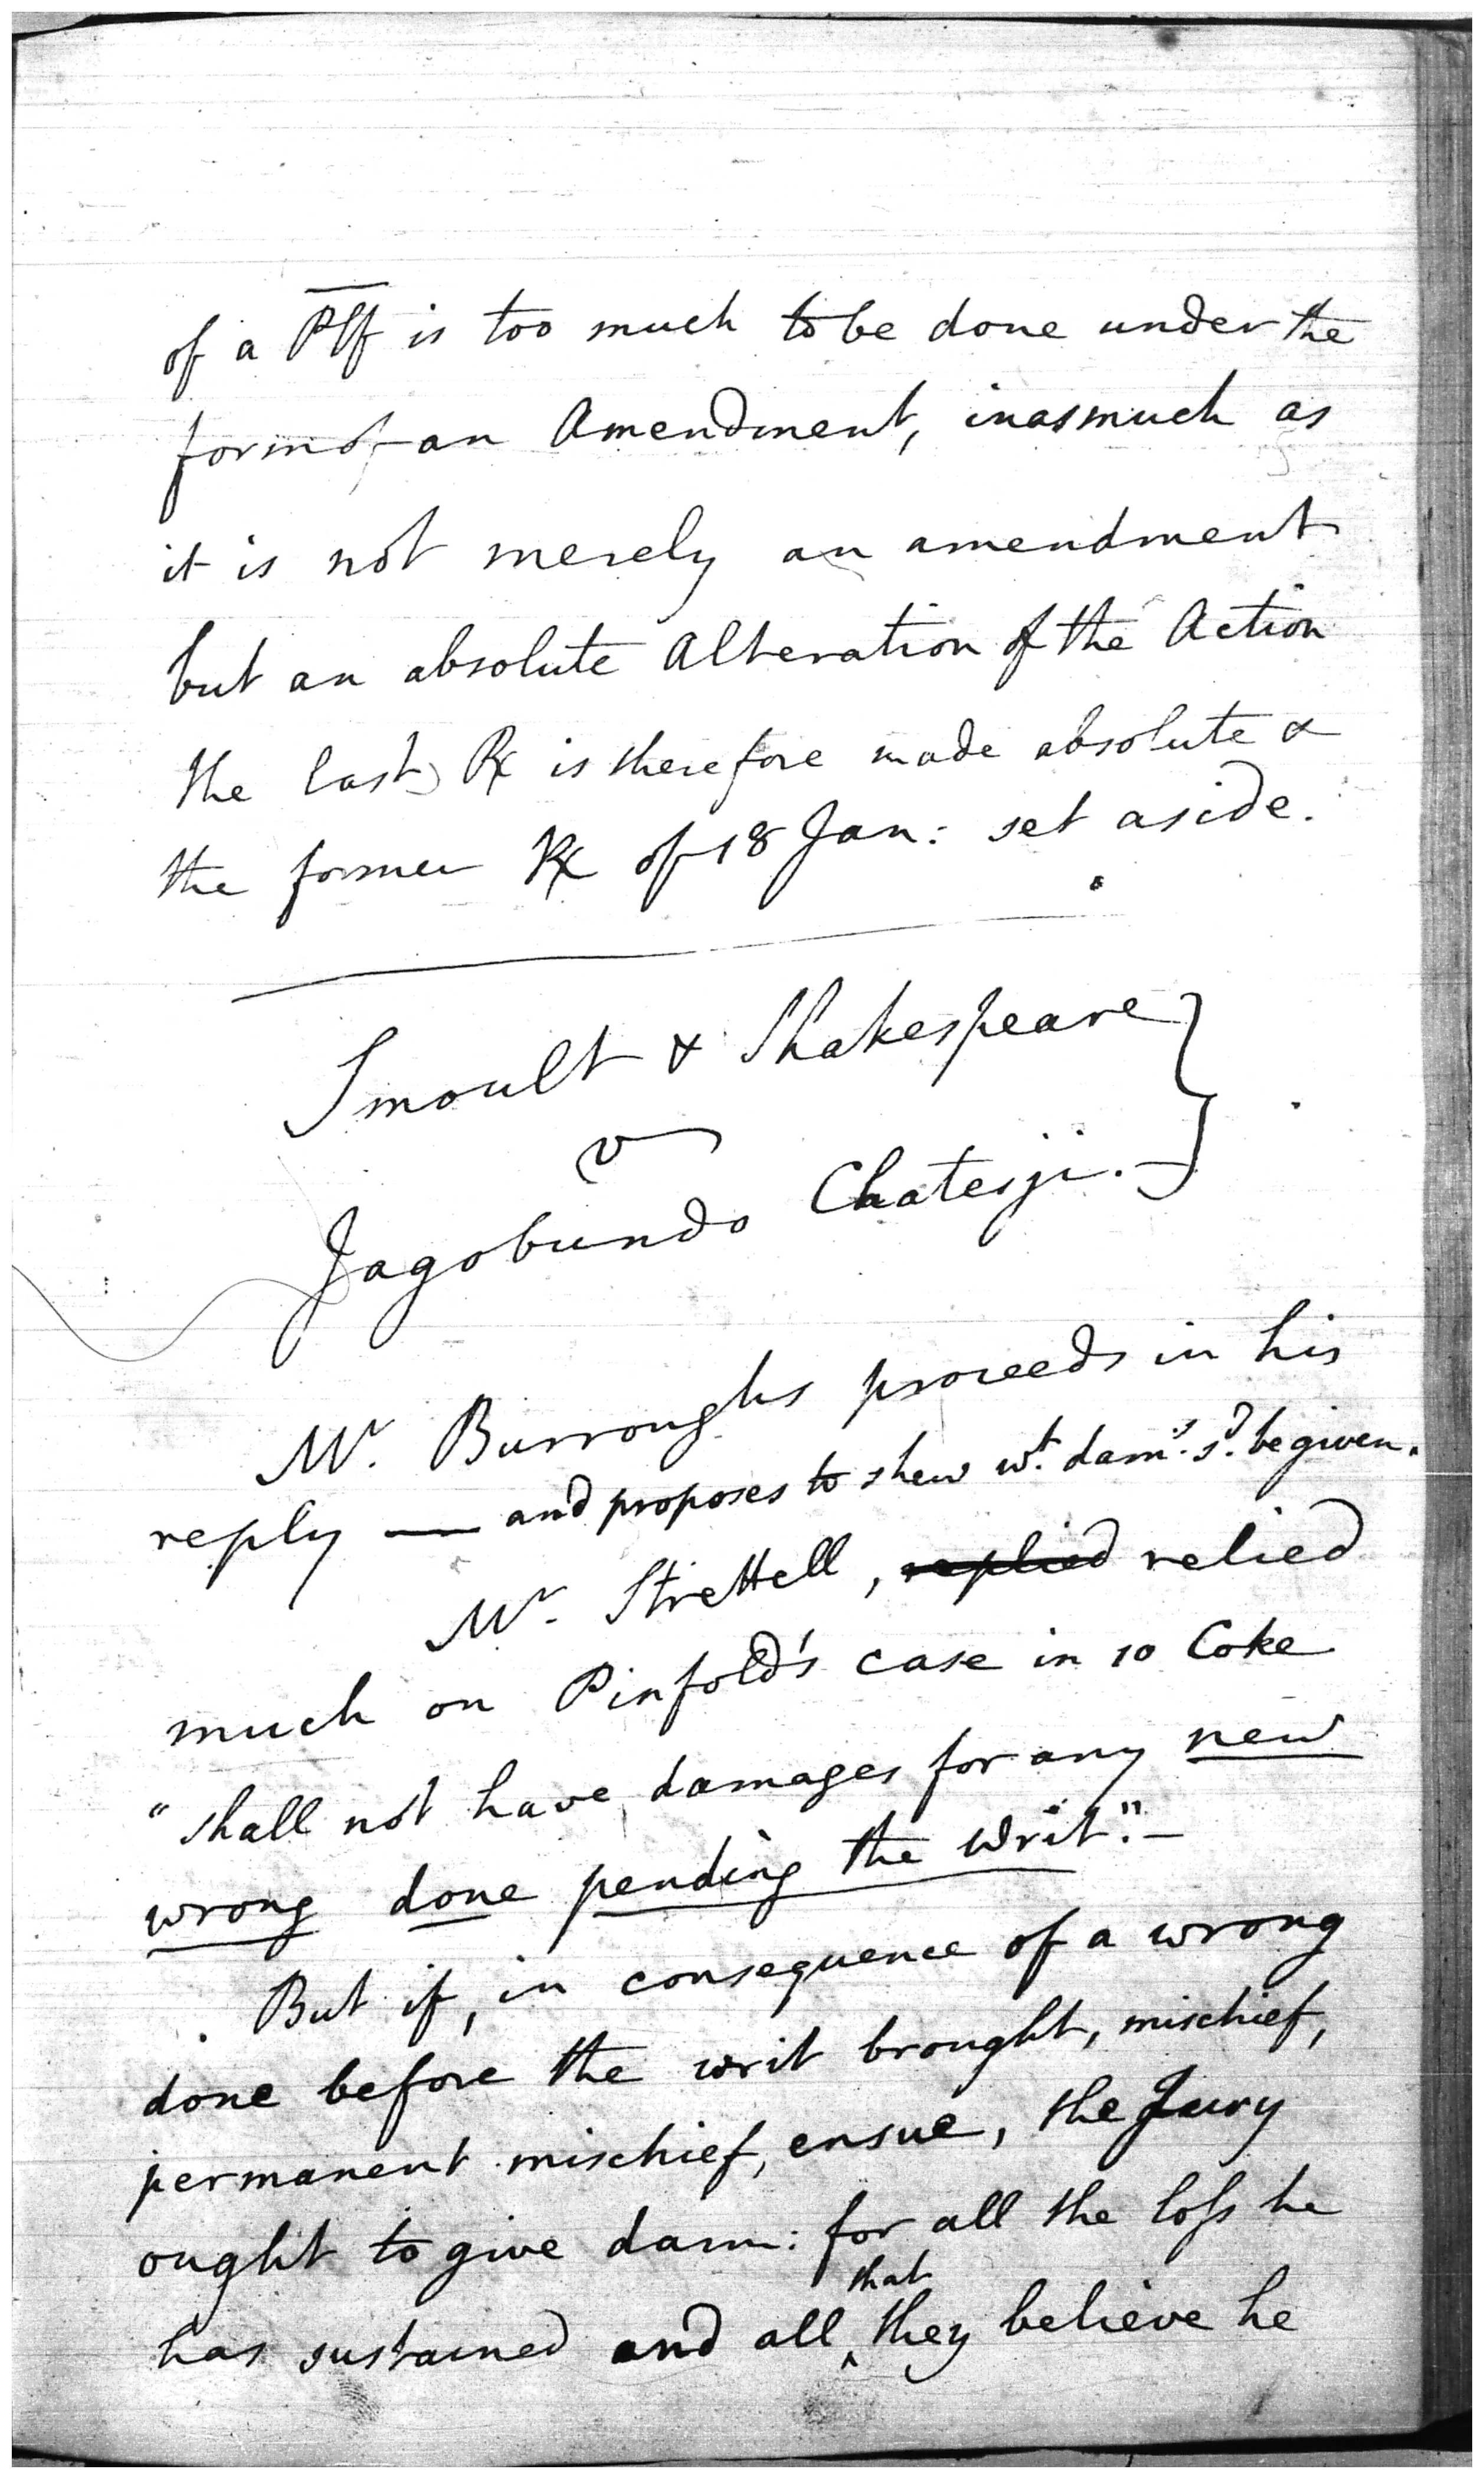 of a Plff is too much to be done under the
form of an Amendment, inasmuch as
it is not merely an amendment
but an absolute Alteration of the Action
the last R is therefore made absolute &
the former R of 18 Jan: set aside.
Smoult & Shakespeare
v
Jagobundo Chaterji.
Mr. Burroughs proceeds in his
reply — and proposes to shew wt. dams. sd. be given.
Mr. Strettell, replied relied
much on Pinfold's case in 10 Coke
"shall not have damages for any new
wrong done pending the writ." —
But if, in consequence of a wrong
done before the writ brought, mischief,
permanent mischief, ensue, the Jury
ought to give dam: for all the loss he
has sustained and all that they believe he